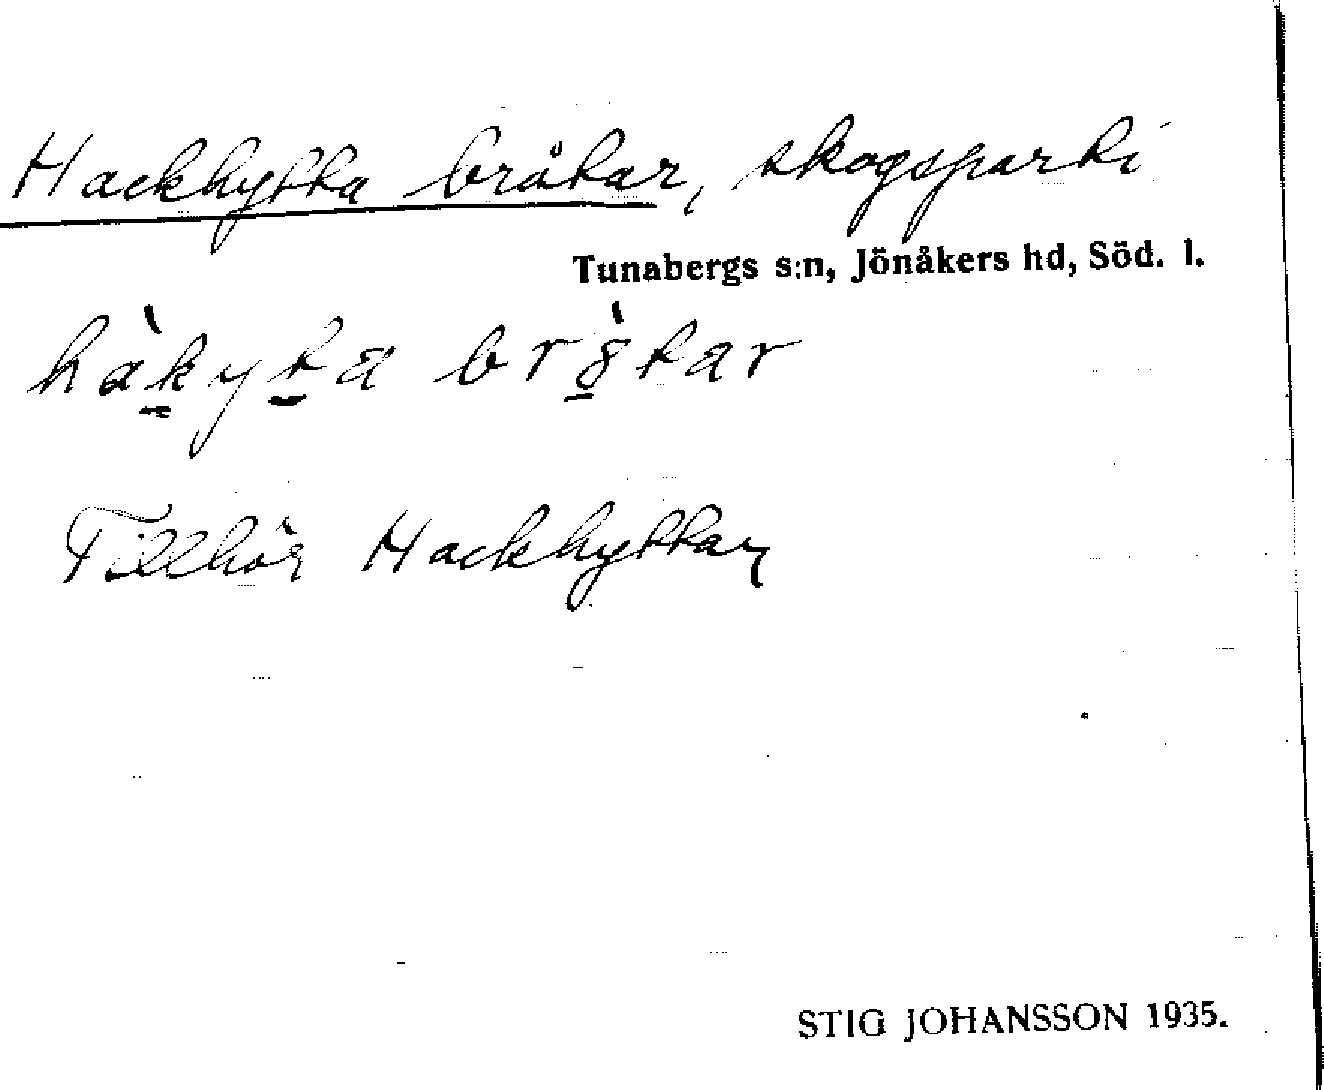 Hackhytta bråtar, skogsparti
Tunabergs s:n, Jönåkers hd, Söd. l.
hàk̠yt̠a br8̠̀tar
Tillhör Hackhyttan
STIG JOHANSSON 1935.